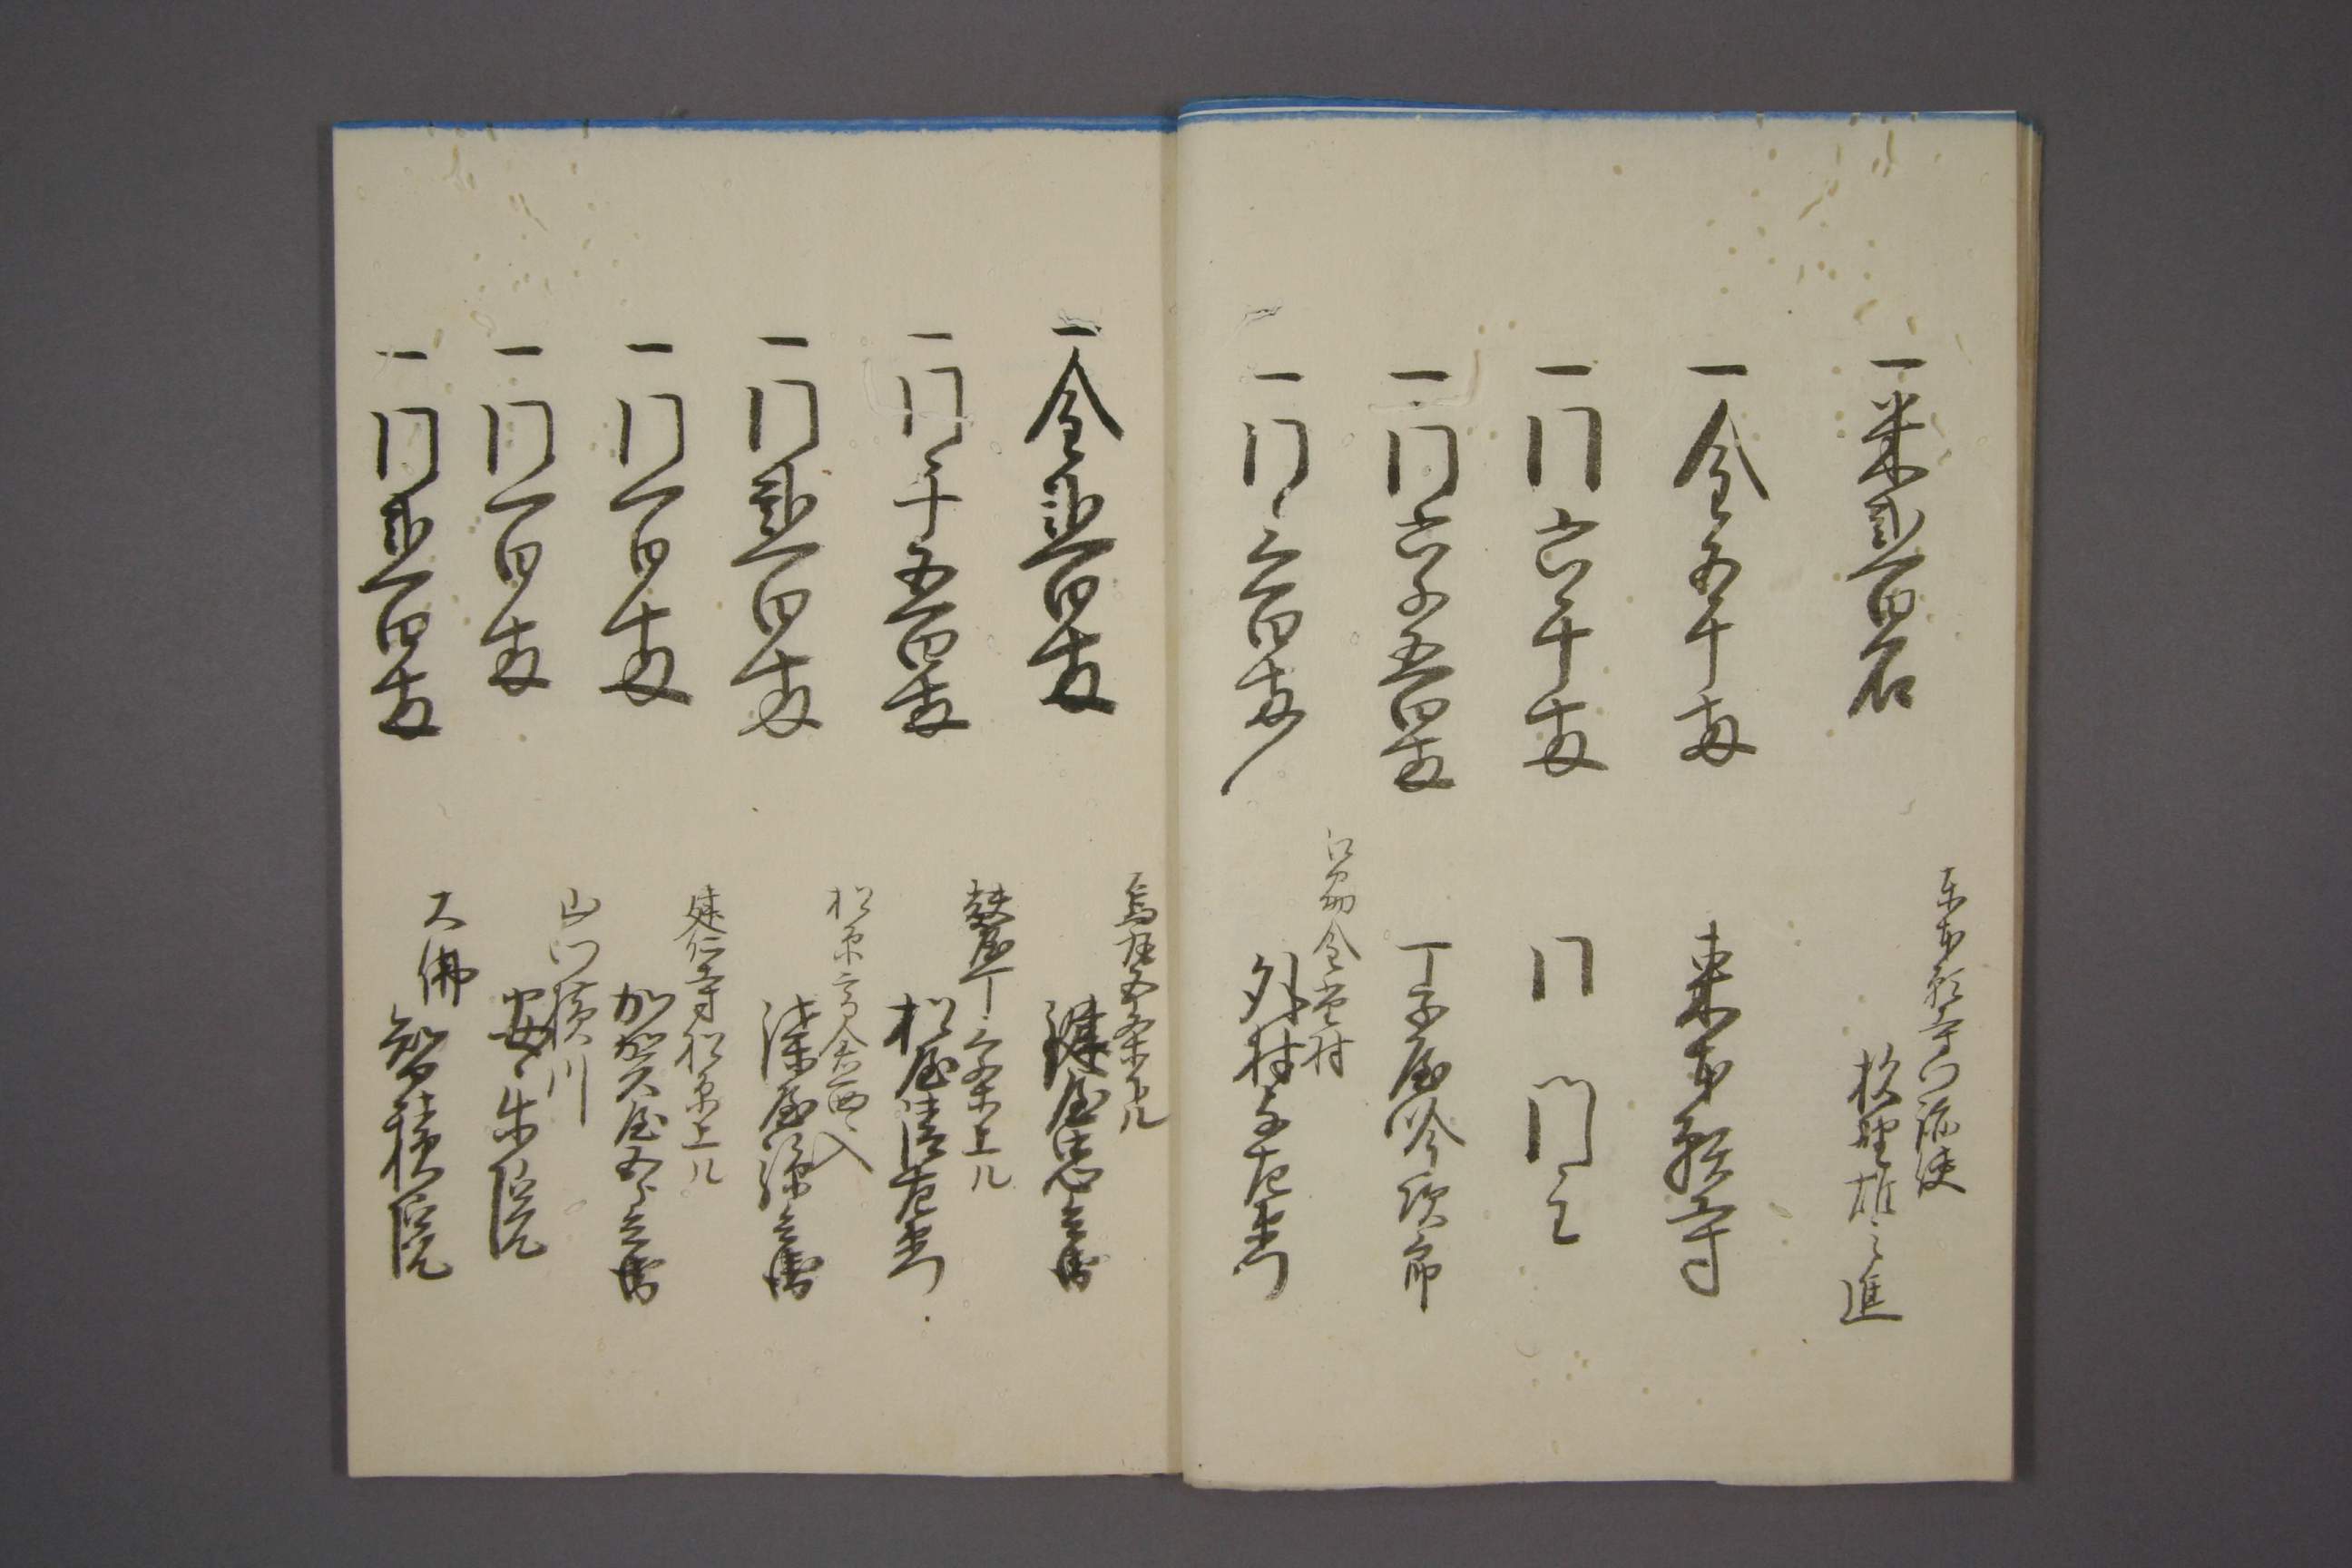 一米弐百石
東本願寺門跡使
枚野雄之進
一金五千両
東本願寺
一同六千両
同 門主
一同六千五百両
丁子屋吟次郎
一同三百両
江州金堂村
外村与左衛門
一金弐百両
烏丸五条下ル
鍵屋忠兵衛
一同千五百両
麩屋丁三条上ル
松屋清左衛門
一同弐百両
松原高倉西へ入
津屋弥兵衛
一同一百両
建仁寺松原上ル
加賀屋五兵衛
一同一百両
山門横川
安楽院
一同弐百両
大佛
智積院